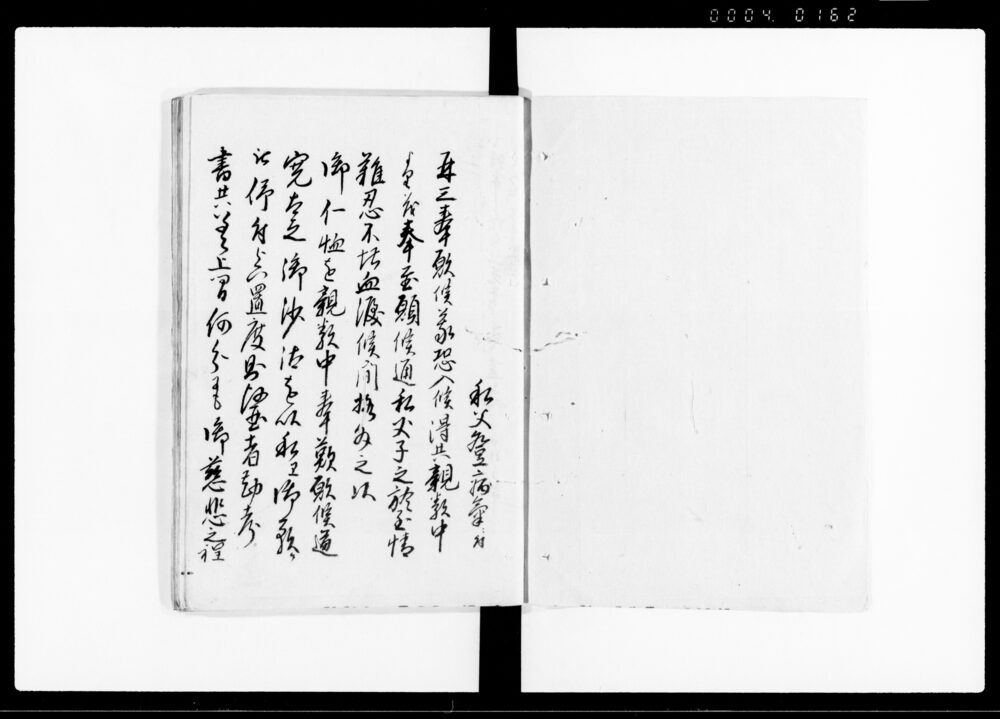 0004 0162
私父登病氣ニ付
再三奉願候義恐入候得共親類中
奉至願候通私父子之於至情
難忍不堪血涙候間格外之以
御仁恤を親類中奉歎願候通
寛大之御沙汰を以私江御預ケ
被仰付被置度別紙医者勘考
書共差上置何分ニも御慈悲之程